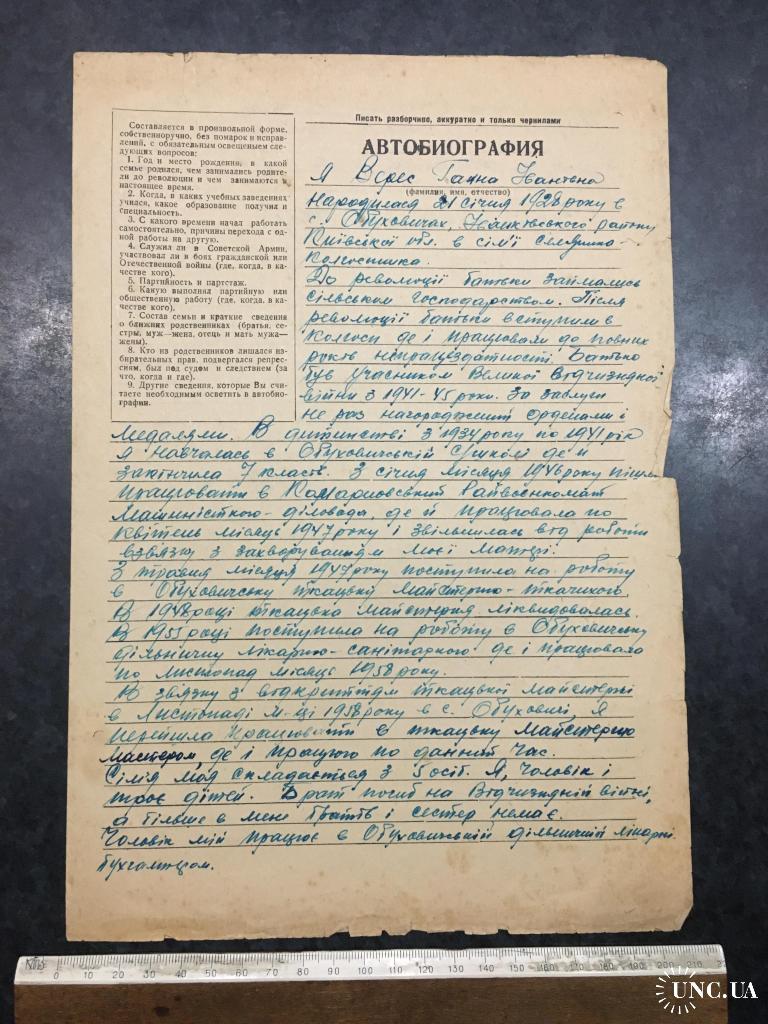 Писать разборчиво, аккуратно и только чернилами
Составляется в произвольной форме,
собственноручно, без помарок и исправ-
лений, с обязательным освещением сле-
дующих вопросов:
1. Год и место рождения, в какой
семье родился, чем занимались родите-
ли до революции и чем занимаются в
настоящее время.
2. Когда, в каких учебных заведениях
учился, какое образование получил и
специальность.
3. С какого времени начал работать
самостоятельно, причины перехода с од-
ной работы на другую.
4. Служил ли в Советской Армии,
участвовал ли в боях гражданской или
Отечественной войны (где, когда, в ка-
честве кого).
5. Партийность и партстаж.
6. Какую выполнял партийную или
общественную работу (где, когда, в ка-
честве кого).
7. Состав семьи и краткие сведения
о ближних родственниках (братья, се-
стры, муж—жена, отець и мать мужа—
жены).
8. Кто из родственников лишался из-
бирательных прав, подвергался репрес-
сиям, был под судом и следствием (за
что, когда и где).
9. Другие сведения, которые Вы счи-
таете необходимым осветить в автобио-
графии.
АВТОБИОГРАФИЯ
Я Верес Ганна Івановна
(фамилия, имя, отчество)
народилася 21 січня 1928 року в
с. Обуховичах, Іванківського району
Київської обл. в сім'ї селянина-
колгоспника.
До революції батьки займались
сільським господарством. Після
революції батьки вступили в
колгосп де і працювали до повних
років непрацездатності. Батько
був учасником Великої Вітчизняної
війни з 1941-45 роки. За заслуги
не раз нагороджений орденами і
медалями. В дитинстві з 1934 року по 1941 рік
я навчалась в Обуховицькій с/школі де й
закінчила 7 класів. З січня місяця 1946 року пішла
працювати в Райвоєнкомат
машиністкою-діловода, де й працювала по
квітень місяць 1947 року і звільнилась від роботи
взвязку з захворуванням моєї матері.
З травня місяця 1947 року поступила на роботу
в Обуховичську ткацьку майстерню-ткачихою.
В 1948 році ткацька майстерня ліквидовалась.
В 1955 році поступила на роботу в Обуховичську
дільничну лікарню-санітаркою де і працювала
по листопад місяць 1958 року.
В звязку з відкриттям ткацької майстерні
в листопаді м-ці 1958 року в с. Обуховичі, я
перейшла працювати в ткацьку майстерню
мастером, де і працюю по данний час.
Сімія моя складається з 5 осіб. Я, чоловік і
троє дітей. Брат погиб на Вітчизняній війні,
а більше в мене братів і сестер немає.
Чоловік мій працює в Обуховицькій дільничній лікарні
бухгалтером.
0 10 20 30 40 50 60 70 80 90 100 110 120 130 140 150 160 170 180 190 200 210
UNC.UA